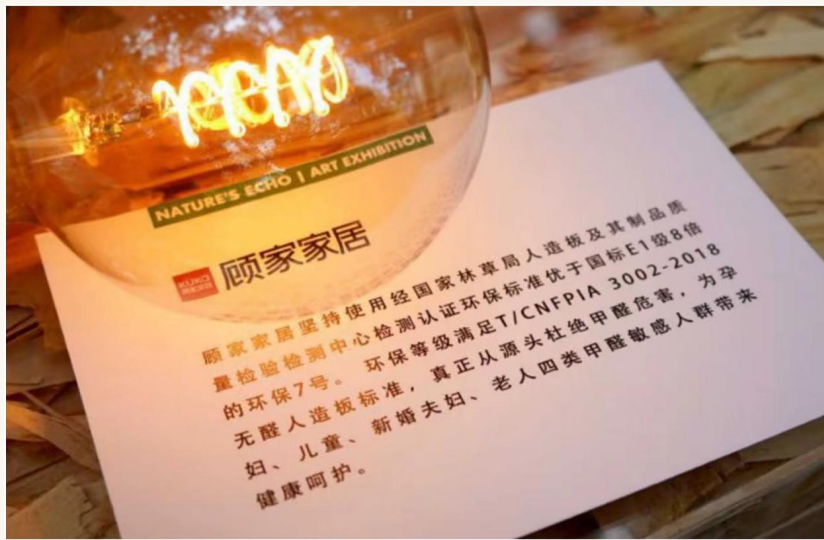 NATURE'S ECHO | ART EXHIBITION
KUKA
顾家家居
顾家家居
顾家家居坚持使用经国家林草局人造板及其制品质
量检验检测中心检测认证环保标准优于国标E1级8倍
的环保7号。 环保等级满足T/CNFPIA 3002-2018
无醛人造板标准，真正从源头杜绝甲醛危害，为孕
妇、儿童、新婚夫妇、老人四类甲醛敏感人群带来
健康呵护。